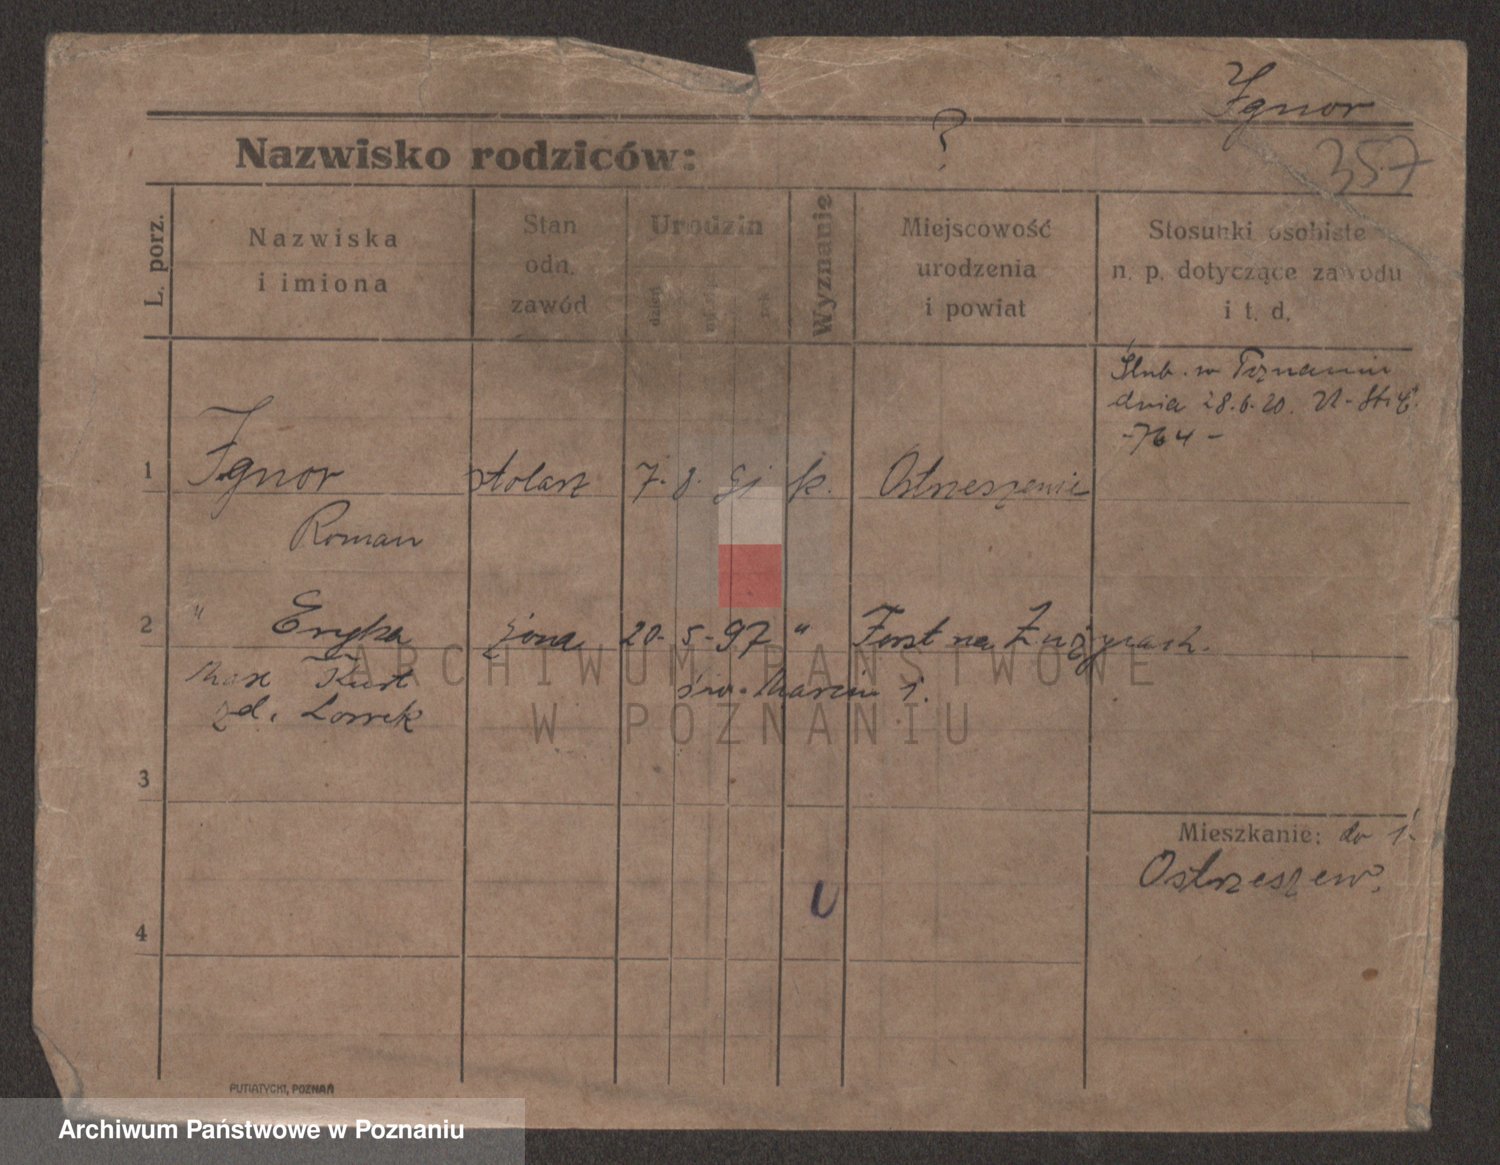 Ignor
357
Nazwisko rodziców: ?
L. porz.
Nazwiska
i imiona
Stan
odn.
zawód
Urodzin
dzień
rok
Wyznanie
Miejscowość
urodzenia
i powiat
Stosunki osobiste
n. p. dotyczące zawodu
i t. d.
Ślub. w Poznaniu
dnia 28.6.20.
-764-
1 Ignor stolarz 7. 8. k. Ostrzeszowie
Roman
2 " Eryka żona 20. 5. 97 " Forst na Łużycach.
Kurt św. Marcin 1.
zd. Lorrek
3
Mieszkanie: do 1.
Ostrzeszew.
U
4
PUTIATYCKI, POZNAŃ
ARCHIWUM PAŃSTWOWE
W POZNANIU
Archiwum Państwowe w Poznaniu